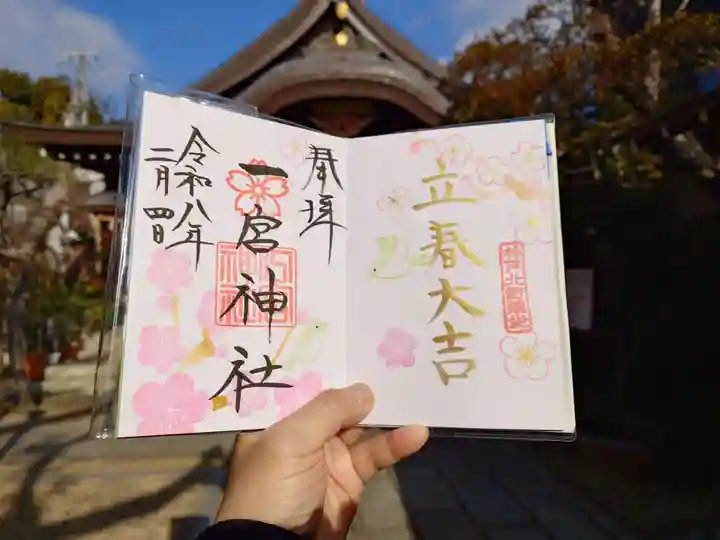 立春大吉
奉拝
一宮神社
令和八年
二月四日